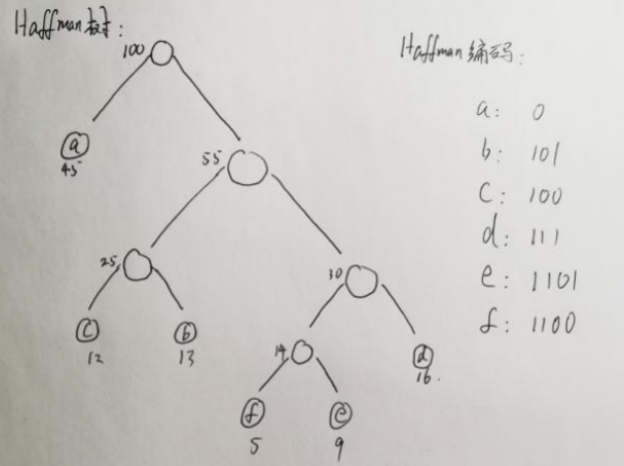 Haffman树:
100
a
45
55
25
30
c
12
b
13
14
d
16.
f
5
e
9
Haffman编码:
a: 0
b: 101
c: 100
d: 111
e: 1101
f: 1100